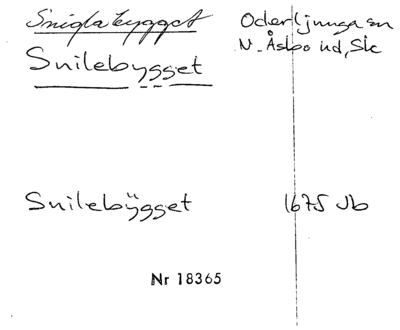 Sniglabygget Oderljunga sn
Snilebygget N. Åsbo hd, Sk
Snilebÿgget 1675 Jb
Nr 18365